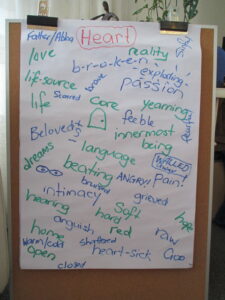 Father/Abba
Heart
love
reality
b-r-o-k-e-n
exploding
life-source
passion
life
Scarred
brave
core
yearning
feeble
Beloved
innermost
being
language
dreams
WALLED
beating
bruised
ANGRY!!
Pain
intimacy
grieved
hearing
Soft
hard
hope
anguish
home
red
raw
warm/cold
shattered
Open
heart-sick
closed